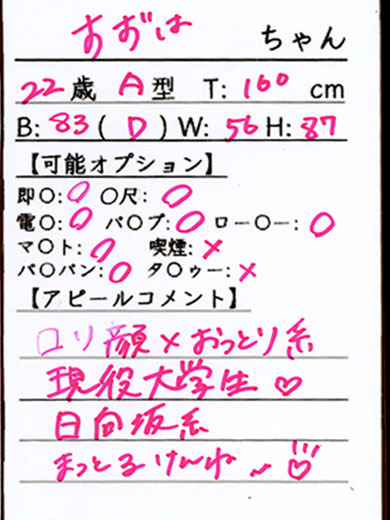 すずは ちゃん
22歳 A型 T: 160 cm
B: 83 ( D ) W: 56 H: 87
【可能オプション】
即〇: 〇 〇尺: 〇
電〇: 〇 バ〇ブ: 〇 ロー〇ー: 〇
マ〇ト: 〇 喫煙: ×
パ〇パン: 〇 タ〇ゥー: ×
【アピールコメント】
ロリ顔×おっとり系
現役大学生♡
日向坂系
まっとるけんね~♡